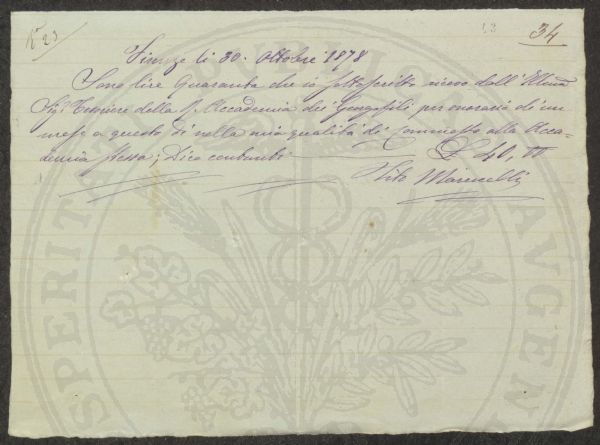 N° 23
13
34
Firenze li 30. Ottobre 1878
Sono lire Quaranta che io sottoscritto ricevo dall' Illmo
Sigr Tesoriere della R. Accademia dei Georgofili per onorario di un
mese a questo dì nella mia qualità di Commesso alla Acca-
demia stessa; Dico contanti £ 40,00
Vito Marucelli
PROSPERITATI AUGENDAE